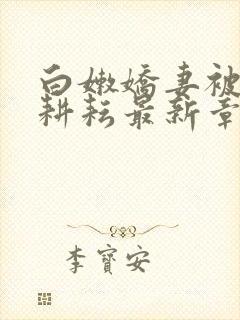 白嫩嬌妻被
耕耘最新章
李寶安